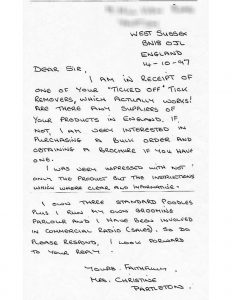 WEST SUSSEX
BN18 0JL
ENGLAND
14-10-97
DEAR SIR,
I AM IN RECEIPT OF
ONE OF YOUR "TICKED OFF" TICK
REMOVERS, WHICH ACTUALLY WORKS!
ARE THERE ANY SUPPLIERS OF
YOUR PRODUCTS IN ENGLAND, IF
NOT, I AM VERY INTERESTED IN
PURCHASING A BULK ORDER AND
OBTAINING A BROCHURE IF YOU HAVE
ONE.
I WAS VERY IMPRESSED WITH NOT
ONLY THE PRODUCT BUT THE INSTRUCTIONS
WHICH WHERE CLEAR AND INFORMATIVE.
I OWN THREE STANDARD POODLES
PLUS I RUN MY OWN GROOMING
PARLOUR AND I HAVE BEEN INVOLVED
IN COMMERCIAL RADIO (SALES). SO DO
PLEASE RESPOND, I LOOK FORWARD
TO YOUR REPLY.
YOURS FAITHFULLY,
MRS. CHRISTINE
PARTLETON.